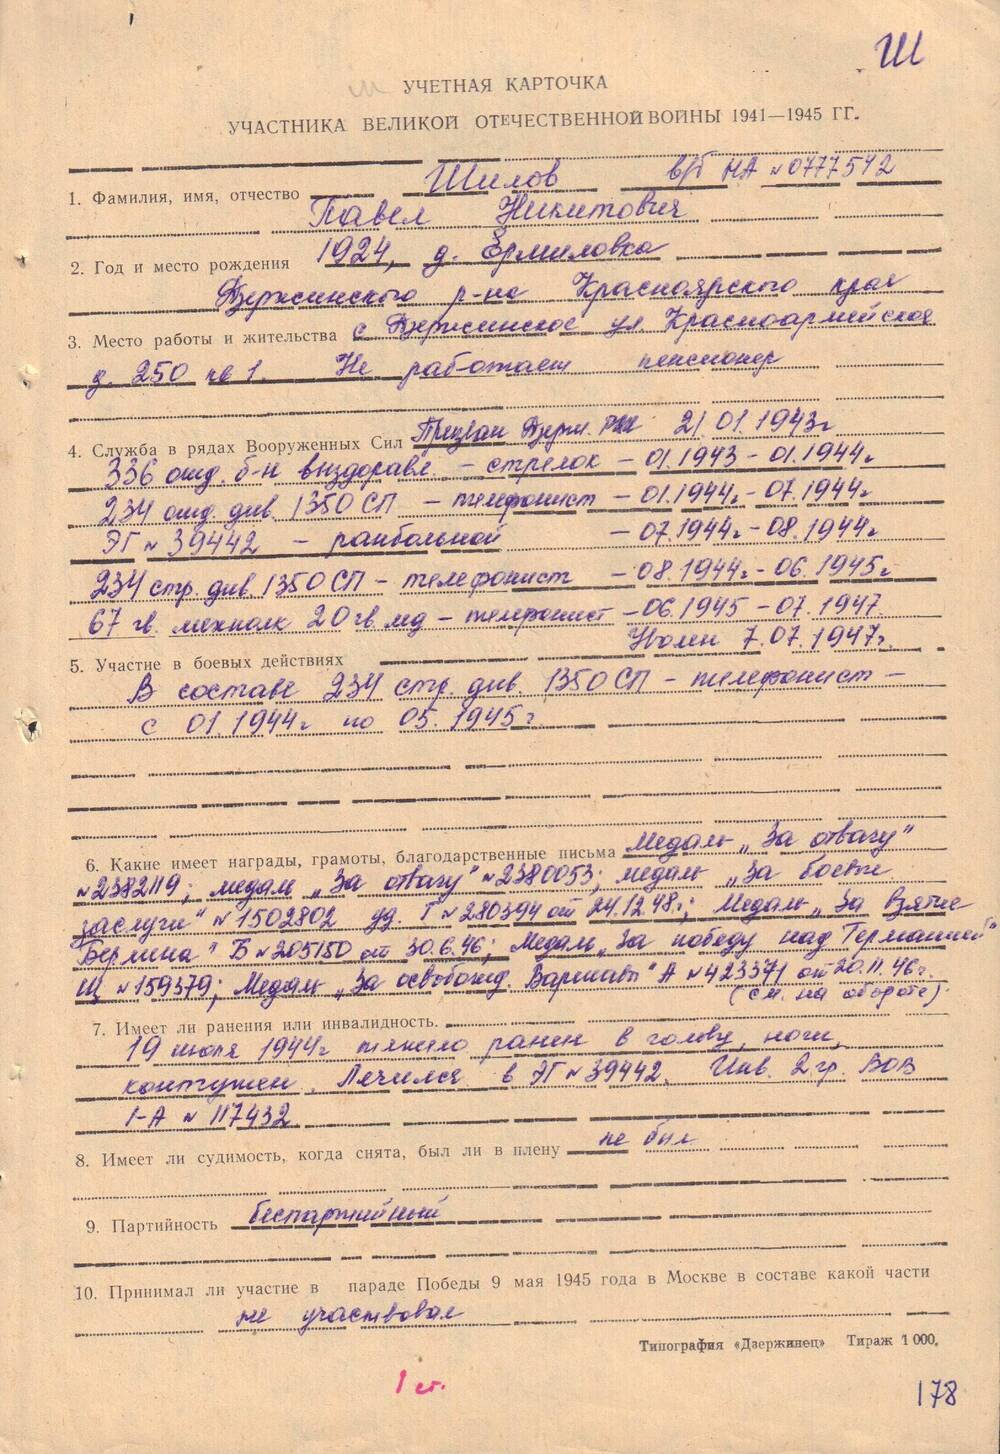 Ш
УЧЕТНАЯ КАРТОЧКА
УЧАСТНИКА ВЕЛИКОЙ ОТЕЧЕСТВЕННОЙ ВОЙНЫ 1941—1945 ГГ.
1. Фамилия, имя, отчество Шилов в/б НА №0777542
Павел Никитович
2. Год и место рождения 1924, д. Ермиловка
Дзержинского р-на Красноярского края
3. Место работы и жительства с Дзержинское ул Красноармейская
д. 250 кв 1. Не работает пенсионер
4. Служба в рядах Вооруженных Сил Призван Дзерж. РВК 21.01.1943г
336 отд. б-н выздоравл. – стрелок – 01.1943 – 01.1944г
234 отд. див. 1350 СП – телефонист – 01.1944г – 07.1944г
ЭГ №39442 – ранбольной – 07.1944г – 08.1944г
234 стр. див. 1350 СП – телефонист – 08.1944г – 06.1945г
67 гв. мехполк 20 гв. мд – телефонист – 06.1945 – 07.1947.
Уволен 7.07.1947г.
5. Участие в боевых действиях
В составе 234 стр. див. 1350 СП – телефонист –
с 01.1944г по 05.1945г
6. Какие имеет награды, грамоты, благодарственные письма Медаль „За отвагу"
№2382119; медаль „За отвагу" №2380053; медаль „За боевые
заслуги" №1502802 уд. Г №280394 от 24.12.48г; Медаль „За взятие
Берлина" Б №205150 от 30.6.46; Медаль „За победу над Германией"
Щ №159379; Медаль „За освобожд. Варшавы" А №423371 от 20.11.46г.
(см. на обороте)
7. Имеет ли ранения или инвалидность.
19 июля 1944г тяжело ранен в голову, ноги,
контужен. Лечился в ЭГ №39442. Инв. 2 гр. ВОВ
Г-А №117432
8. Имеет ли судимость, когда снята, был ли в плену не был
9. Партийность беспартийный
10. Принимал ли участие в параде Победы 9 мая 1945 года в Москве в составе какой части
не участвовал
Типография «Дзержинец» Тираж 1 000.
1 ст.
178